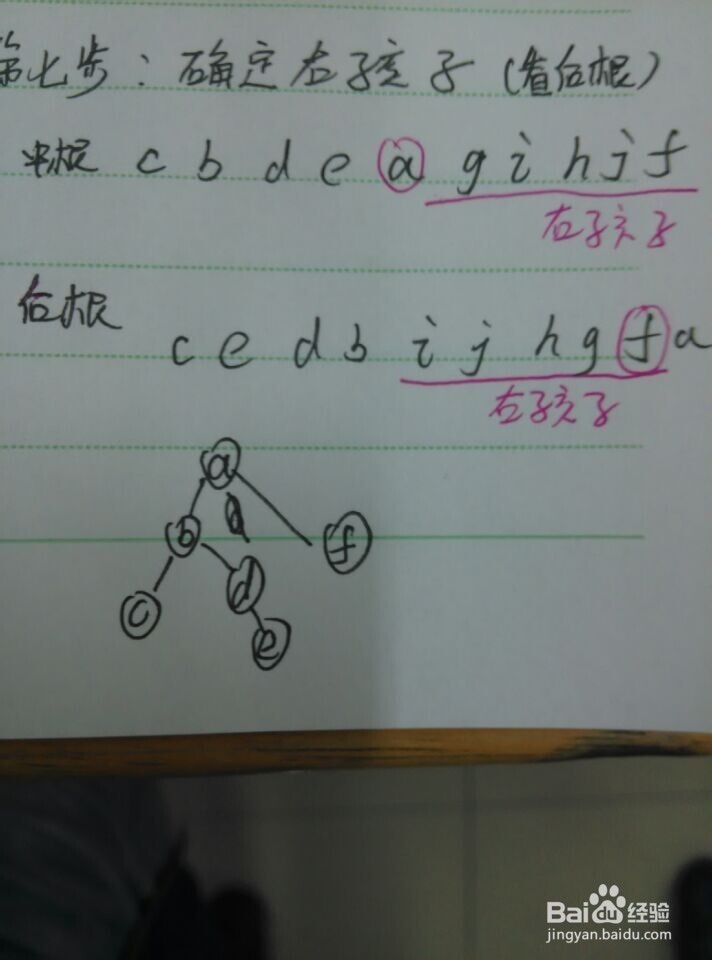 第七步：确定右孩子（看后根）
中根 c b d e a g i h j f
右子亥子
后根
c e d b i j h g f a
右子亥子
a
b
f
c
d
e
Bai du 经验
jingyan.baidu.com